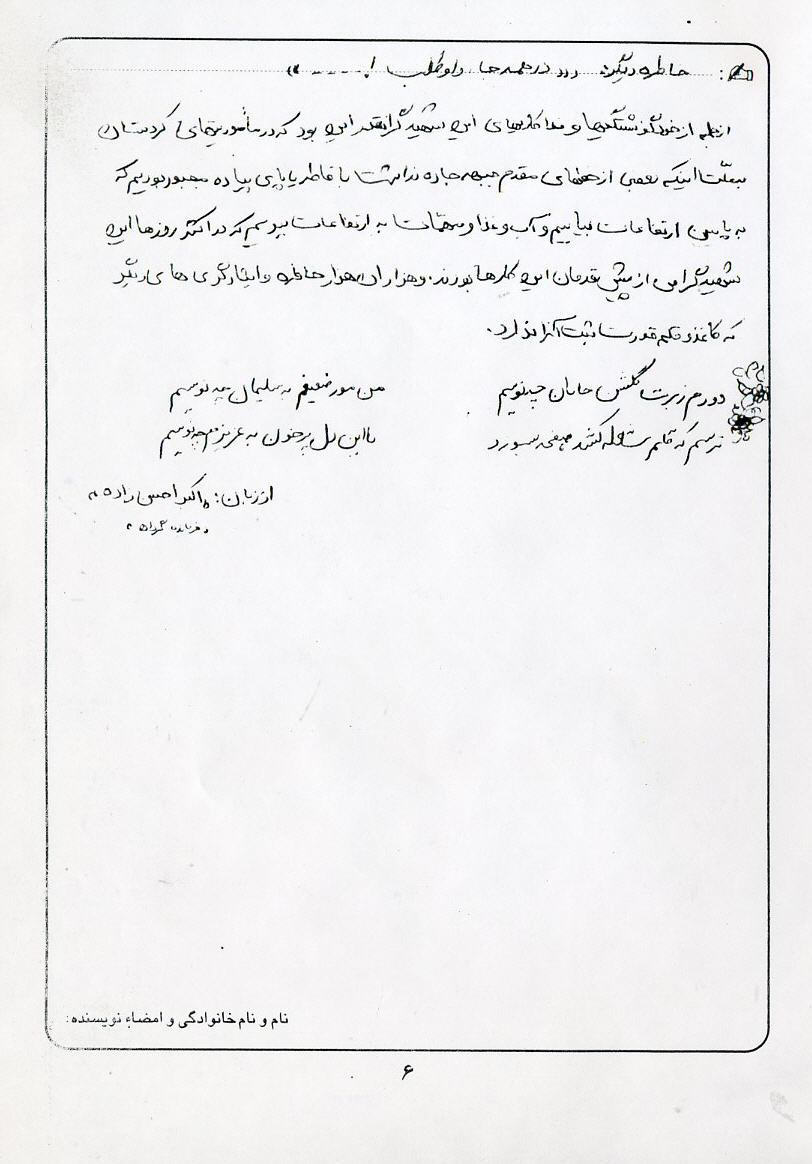 خاطره دیگر: «« در همه جا داوطلب !..... »»
از جمله از خودگذشتگیها و فداکاریهای این شهید گرانقدر این بود که در مأموریتهای کردستان
بعلت اینکه بعضی از خطهای مقدم جبهه جاده نداشت با قاطر یا پای پیاده مجبور بودیم که
به پایین ارتفاعات بیاییم و آب و غذا و مهمات به ارتفاعات ببریم که در اکثر روزها این
شهید گرامی از پیش قدمان این کارها بودند. و هزاران هزار خاطره و ایثارگری های دیگر
که کاغذ و قلم قدرت ثبت آنرا ندارد.
دورم ز برت گلشن جانان چه نویسم من مور ضعیفم به سلیمان چه نویسم
ترسم که قلم شعله کشد صفحه بسوزد با این دل پر خون به عزیزم چه نویسم
از زبان: «اکبر احسن زاده»
« فرمانده گردان »
نام و نام خانوادگی و امضاء نویسنده:
۶